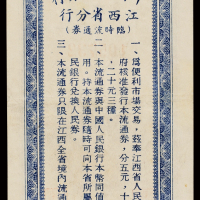 江西省分行
(臨時流通券)
一、為便利市場交易，茲奉江西省人民
府核准發行本流通券，分五元，十
，二十元三種。
二、本流通券與中國人民銀行本幣同值
用。持本流通券隨時可向本省所屬
民銀行兌換人民券。
三、本流通券只限在江西全省境內流通